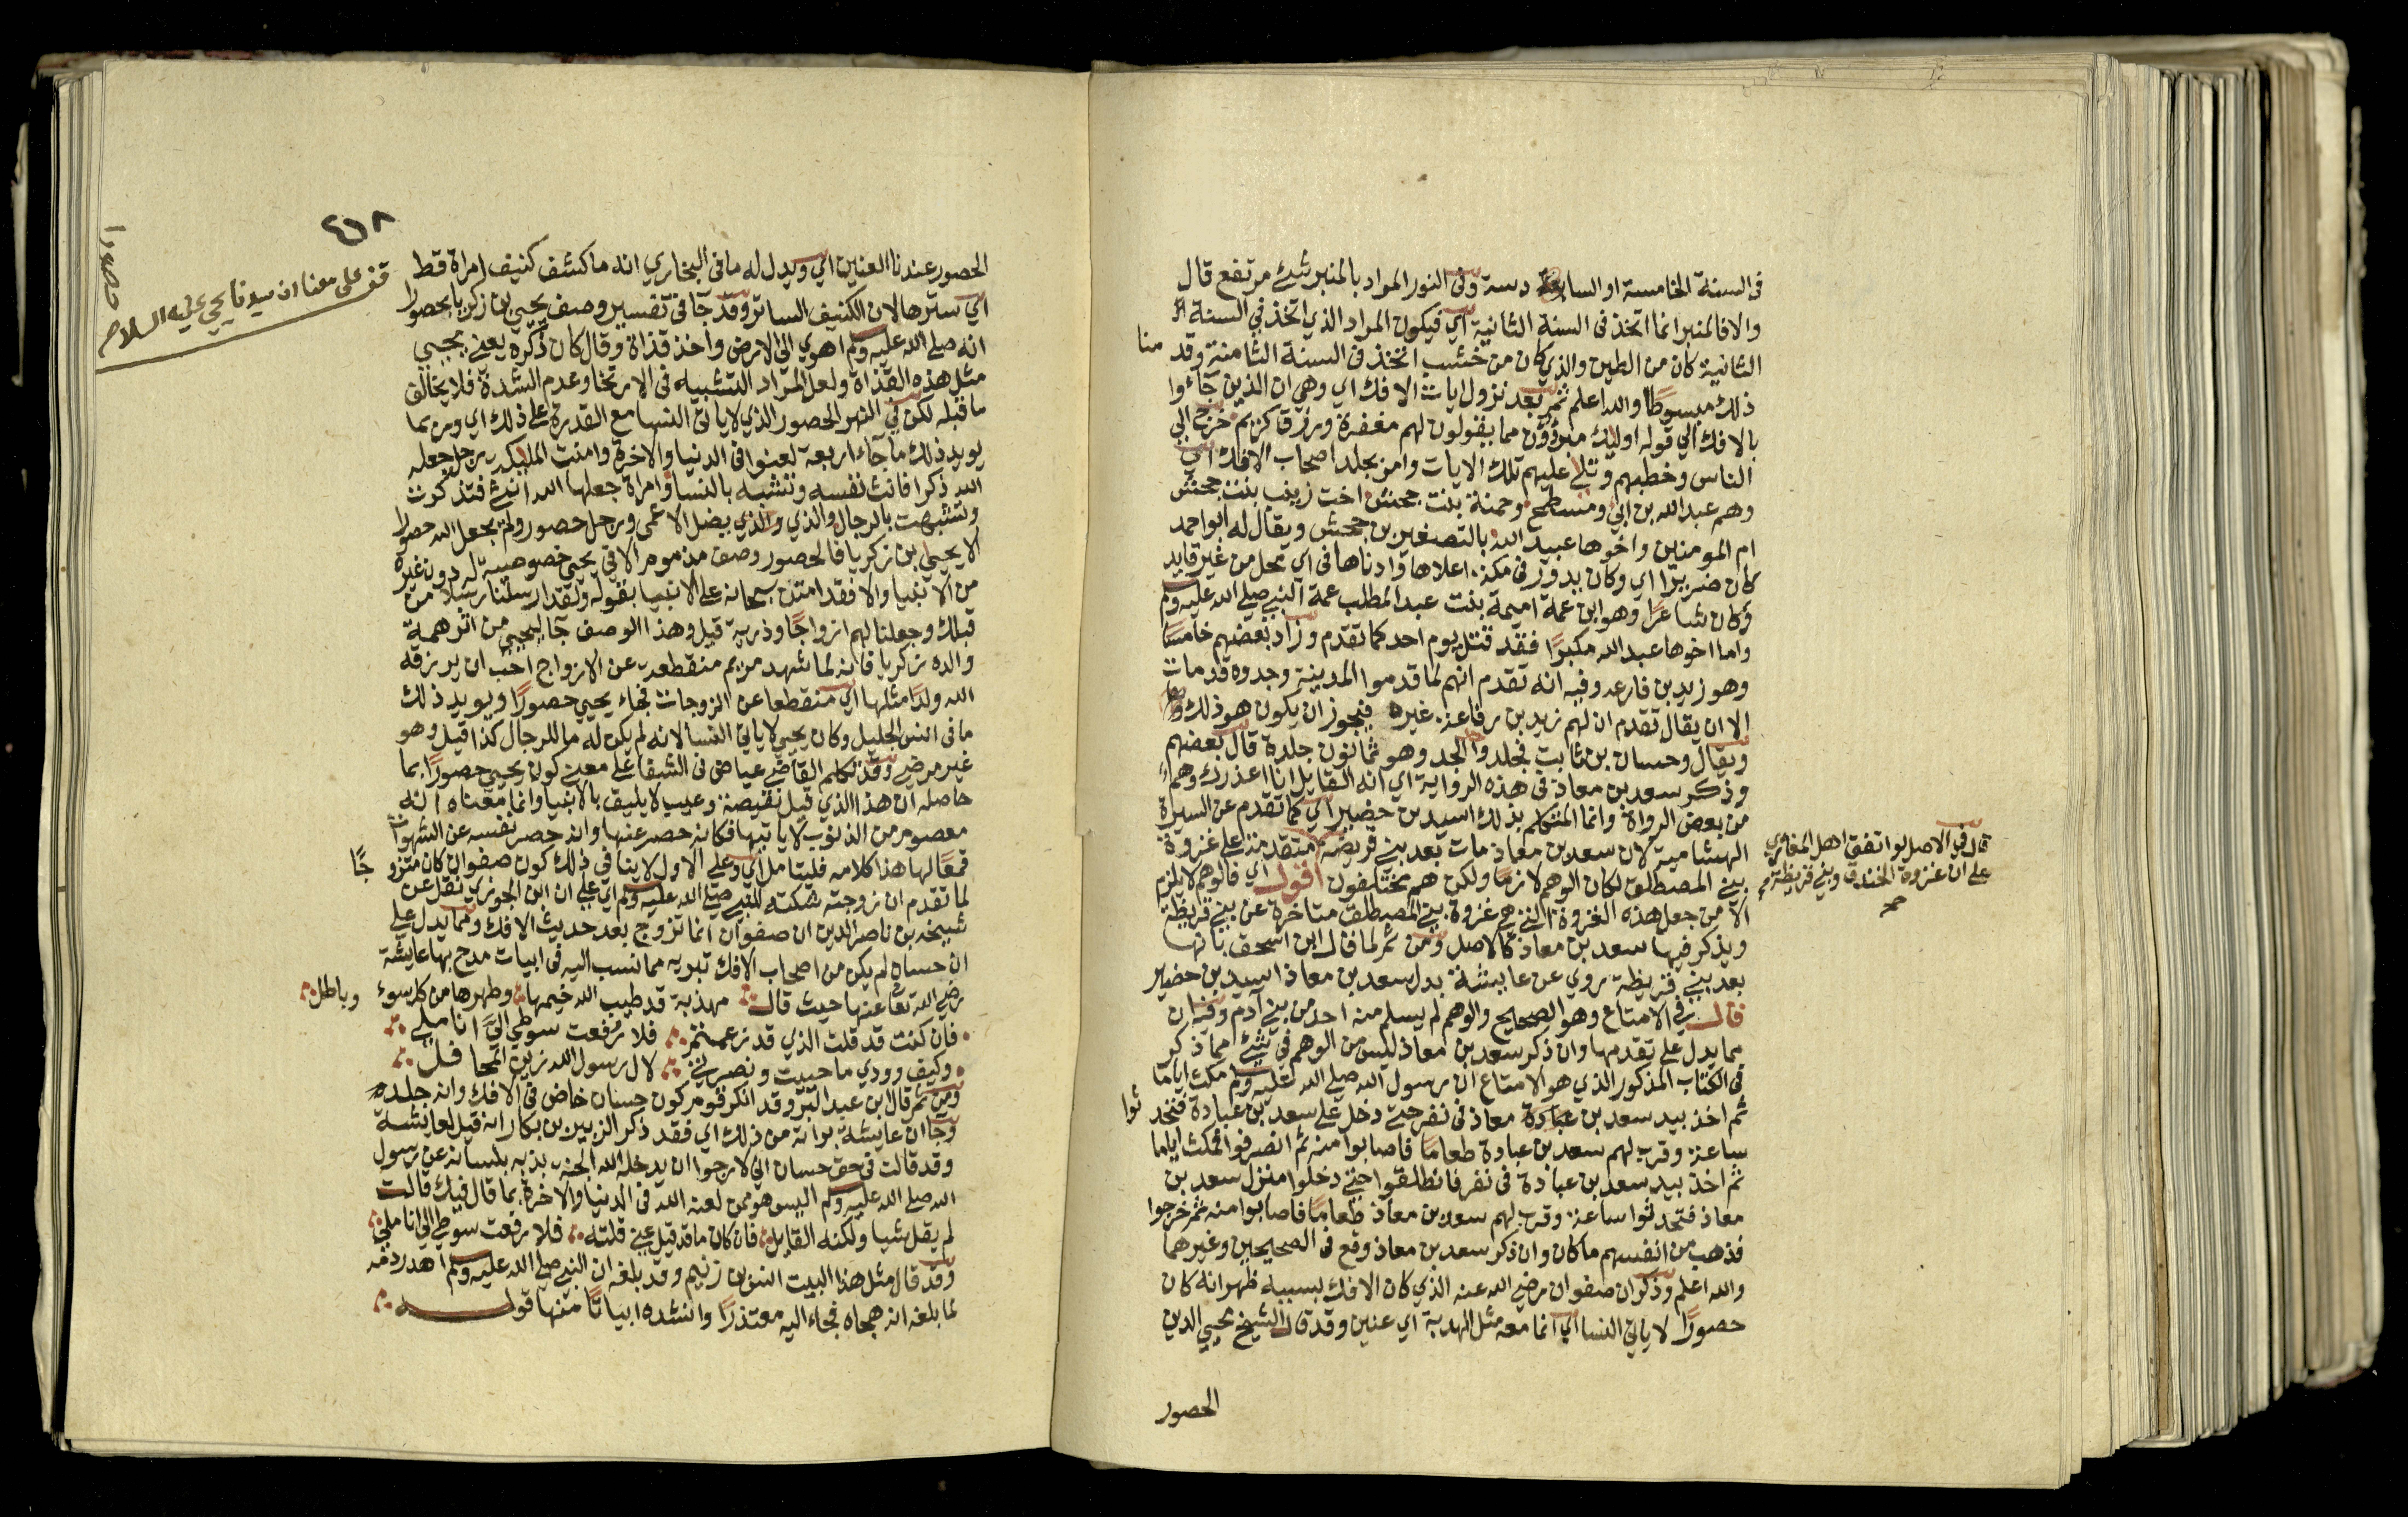 في السنة الخامسة او السابعة دسة وفي النور المراد بالمنبر شئ مرتفع قال
والا فالمنبر انما اتخذ في السنة الثانية اي فيكون المراد الذي اتخذ في السنة
الثانية كان من الطين والذي كان من خشب اتخذ في السنة الثامنة وقد منا
ذلك مبسوطا والله اعلم ثم بعد نزول ايات الافك اي وهي ان الذين جاءوا
بالافك الي قوله اوليك مبرؤون مما يقولون لهم مغفرة ورزق كريم خرج الي
الناس وخطبهم وتلا عليهم تلك الايات وامر بجلد اصحاب الافك اي
وهم عبد الله بن ابي ومسطح وحمنة بنت جحش اخت زينب بنت جحش
ام المومنين واخوها عبيد الله بالتصغير بن جحش ويقال له ابو احمد
كان ضريرا اي وكان يدور في مكة اعلاها وادناها في اي محل من غير قايد
وكان شاعرا وهو ابن عمة اميمة بنت عبد المطلب عمة النبي صلي الله عليه وسلم
واما اخوها عبد الله مكبرا فقد قتل يوم احد كما تقدم وزاد بعضهم خامسا
وهو زيد بن فارعه وفيه انه تقدم انهم لما قدموا المدينة وجدوه قد مات
الا ان يقال تقدم ان لهم زيد بن رفاعة غيره فيجوز ان يكون هو ذلك
ويقال وحسان بن ثابت فجلدوا الحد وهو ثمانون جلدة قال بعضهم
وذكر سعد بن معاذ في هذه الرواية اي انه القايل انا اعذرك وهم
من بعض الرواة وانما المتكلم بذلك اسيد بن حضير اي كما تقدم عن السيرة
الهشامية لان سعد بن معاذ مات بعد بني قريضة متقدمة علي غزوة
بني المصطلق لكان الوهم لازما ولكن هم مختلفون اقول اي فالوهم لا يلزم
الا من جعل هذه الغزوة التي هي غزوة بني المصطلق متاخرة عن بني قريظة
ويذكر فيها سعد بن معاذ كالاصل ومن ثم لما قال ابن اسحق بانها
بعد بني قريظة روي عن عايشة بدل سعد بن معاذ اسيد بن حضير
قال في الامتاع وهو الصحيح والوهم لم يسلم منه احد من بني آدم وفيه ان
مما يدل علي تقدمها وان ذكر سعد بن معاذ ليس من الوهم في شئ مما ذكر
في الكتاب المذكور الذي هو الامتاع ان رسول الله صلي الله عليه وسلم مكث اياما
ثم اخذ بيد سعد بن معاذ في نفر حتي دخل علي سعد بن عبادة فتحد ثوا
ساعة وقرب لهم سعد بن عبادة طعاما فاصابوا منه ثم انصرفوا فمكث اياما
ثم اخذ بيد سعد بن عبادة في نفر فانطلقوا حتي دخلوا منزل سعد بن
معاذ فتحدثوا ساعة وقرب لهم سعد بن معاذ طعاما فاصابوا منه ثم خرجوا
فذهب من انفسهم ما كان وان ذكر سعد بن معاذ وقع في الصحيحين وغيرهما
والله اعلم وذكر ان صفوان رضي الله عنه الذي كان الافك بسببه ظهر انه كان
حصورا لا ياتي النسا اي انما معه مثل الهدبة اي عنين وقد قال الشيخ محيي الدين
الحصور
قال في الاصل لو اتفق اهل المغازي
علي ان غزوة الخندق وبني قريظة
صح
٤٥٨
الحصور عندنا العنين اي ويدل له ما في البخاري انه ما كشف كنيف امراة قط
اي سترها لان الكنيف الساتر وقد جآ في تفسير وصف يحيي بن زكريا بحصورا
انه صلي الله عليه وسلم اهوي الي الارض واخذ قذاة وقال كان ذكره يعني يحيي
مثل هذه القذاة ولعل المراد التشبيه في الارتخا وعدم الشدة فلا يخالف
ما قبله لكن في النهر الحصور الذي لا ياتي النسا مع القدرة علي ذلك اي وربما
يويد ذلك ما جاء اربعة لعنوا في الدنيا والاخرة وامنت الملايكة رجل جعله
الله ذكرا فانث نفسه وتشبه بالنسا وامراة جعلها الله انثي فتذكرت
وتشبهت بالرجال والذي والذي يضل الاعمى ورجل حصور ولم يجعل الله حصورا
الا يحيي بن زكريا فالحصور وصف مذموم الا في يحيي خصوصية له دون غيره
من الانبيا والا فقد امتن سبحانه علي الانبيا بقوله ولقد ارسلنا رسلا من
قبلك وجعلنا لهم ازواجا وذرية قيل وهذا الوصف جآ ليحيي من اثر همة
والده زكريا فانه لما شهد مريم منقطعة عن الازواج احب ان يرزقه
الله ولدا مثلها اي منقطعا عن الزوجات فجاء يحيي حصورا ويويد ذلك
ما في انس الجليل وكان يحيي لا ياتي النسا لانه لم يكن له ما للرجال كذا قيل وهو
غير مرضي وقد تكلم القاضي عياض في الشفا علي معني كون يحيي حصورا بما
حاصله ان هذا الذي قيل نقيصة وعيب لا يليق بالانبيا وانما معناه انه
معصوم من الذنوب لا ياتيها فكانه حصر عنها وانه حصر نفسه عن الشهوات
قمعا لها هذا كلامه فليتامل اي وعلي الاول لا ينافي ذلك كون صفوان كان متزو جا
لما تقدم ان زوجته شكته للنبي صلي الله عليه وسلم اي علي ان ابن الجوزي نقل عن
شيخه بن ناصر الدين ان صفوان انما تزوج بعد حديث الافك ومما يدل علي
ان حسان لم يكن من اصحاب الافك تبريه مما نسب اليه في ابيات مدح بها عايشة
رضي الله تعا عنها حيث قال مهذبة قد طيب الله خيمها وطهرها من كل سوء وباطل
فان كنت قد قلت الذي قد زعمتم فلا رفعت سوطي الي انا ملي
وكيف وودي ما حييت ونصرتي لال رسول الله زين المحافل
ومن ثم قال ابن عبد البر وقد انكر قوم كون حسان خاض في الافك وانه جلده
وجا ان عايشة براته من ذلك اي فقد ذكر الزبير بن بكار انه قيل لعايشة
وقد قالت في حق حسان اني لارجوا ان يدخله الله الجنة بذبه بلسانه عن رسول
الله صلي الله عليه وسلم اليس هو ممن لعنه الله في الدنيا والاخرة بما قال فيك قالت
لم يقل شيا ولكنه القايل فان كان ما قد قيل عني قلته فلا رفعت سوطي الي انا ملي
وقد قال مثل هذا البيت انس بن زنيم وقد بلغه ان النبي صلي الله عليه وسلم اهدر دمه
لما بلغه انه هجاه فجاء اليه معتذرا وانشده ابياتا منها قوله
قف على معنا ان سيدنا يحيى عليه السلام
حصورا